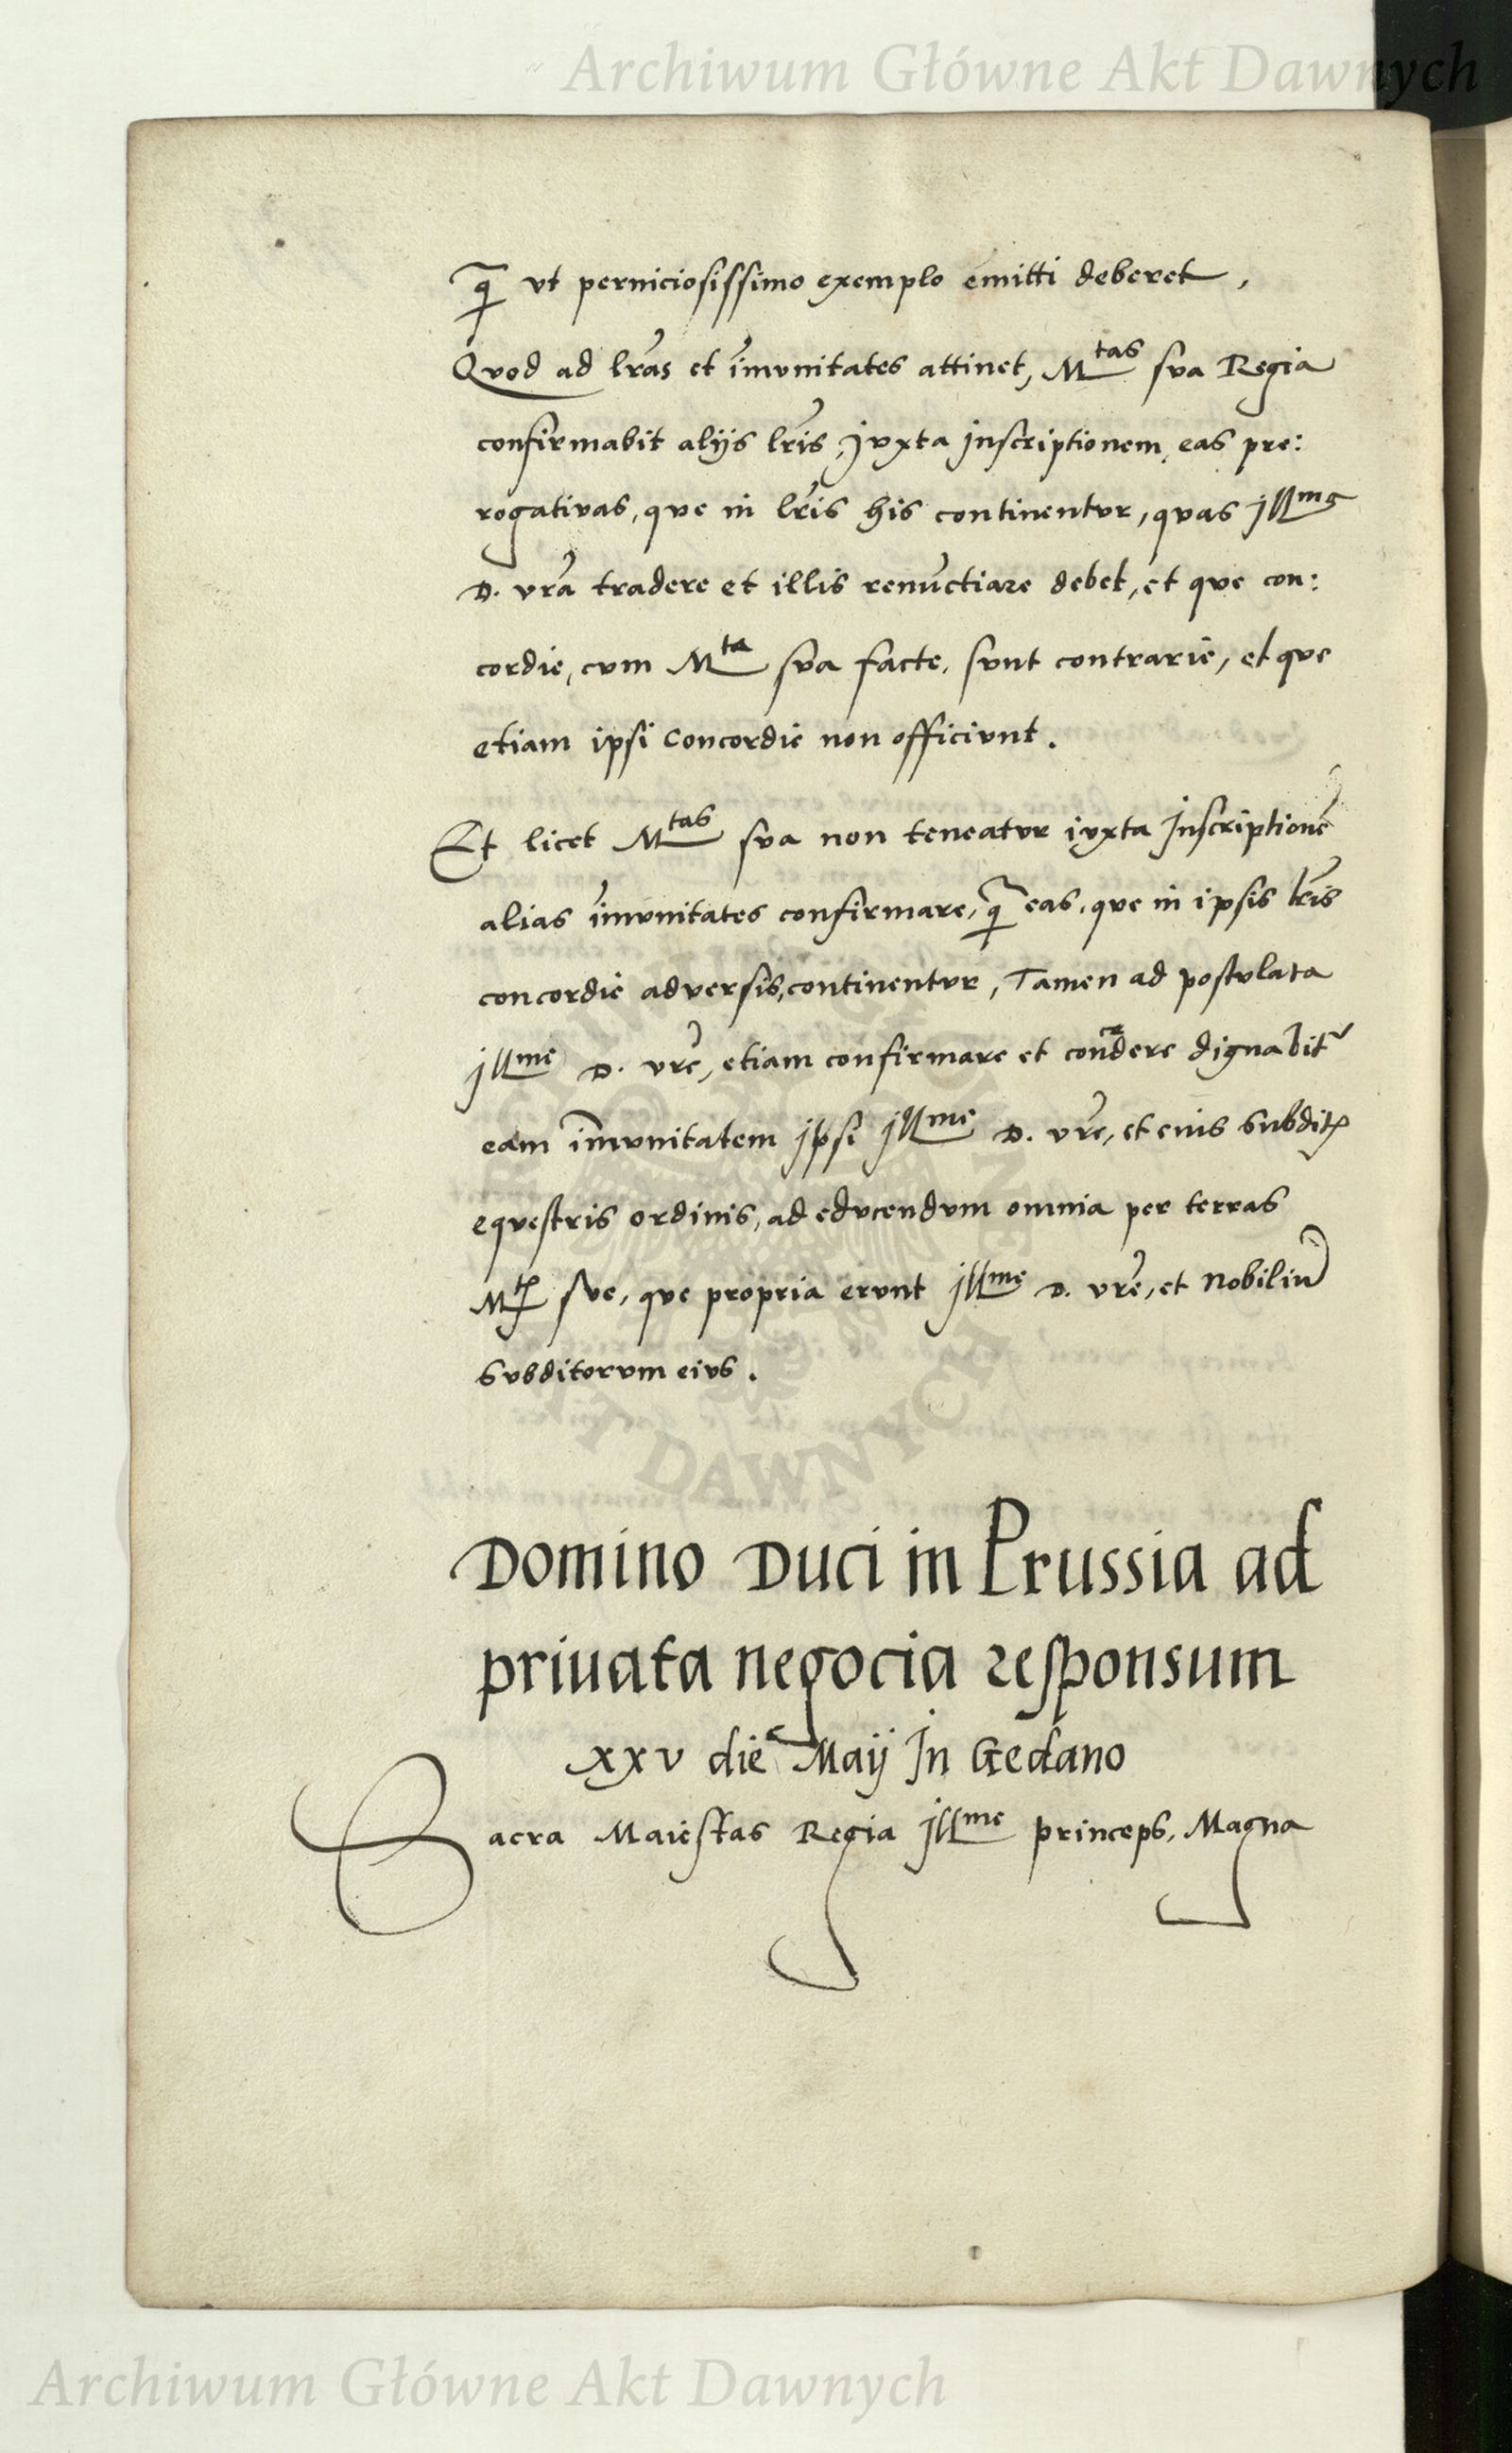 Archiwum Główne Akt Dawnych
q̃ vt perniciosissimo exemplo emitti deberet,
Quod ad lr̃as et im̃vnitates attinet, M^tas sva Regia
confirmabit alijs lr̃is, Jvxta Jnscriptionem, eas pre:
rogativas, qve in lr̃is his continentvr, qvas Jll^mg
D. vrã tradere et illis renũctiare debet, et qve con:
cordie, cvm M^ta sva facte, svnt contrarie, et qve
etiam ipsi Concordie non officivnt.
Et licet M^tas sva non teneatvr ivxta Jnscriptionẽ
alias im̃vnitates confirmare, q̃ eas, qve in ipsis lr̃is
concordie adversis, continentvr, Tamen ad postvlata
Jll^me D. vrẽ, etiam confirmare et con^cedere dignabit^r
eam im̃vnitatem Jpsi Jll^me D. vrẽ, et eius Subditꝭ
eqvestris ordinis, ad edvcendvm omnia per terras
M^tꝭ sve, qve propria ervnt Jll^me D. vrẽ, et Nobiliũ
Svbditorvm eivs.
Domino Duci in Prussia ad
priuata negocia responsum
xxv die Maij Jn Gedano
Sacra Maiestas Regia Jll^me princeps, Magna
AKT DAWNYCH
Archiwum Główne Akt Dawnych